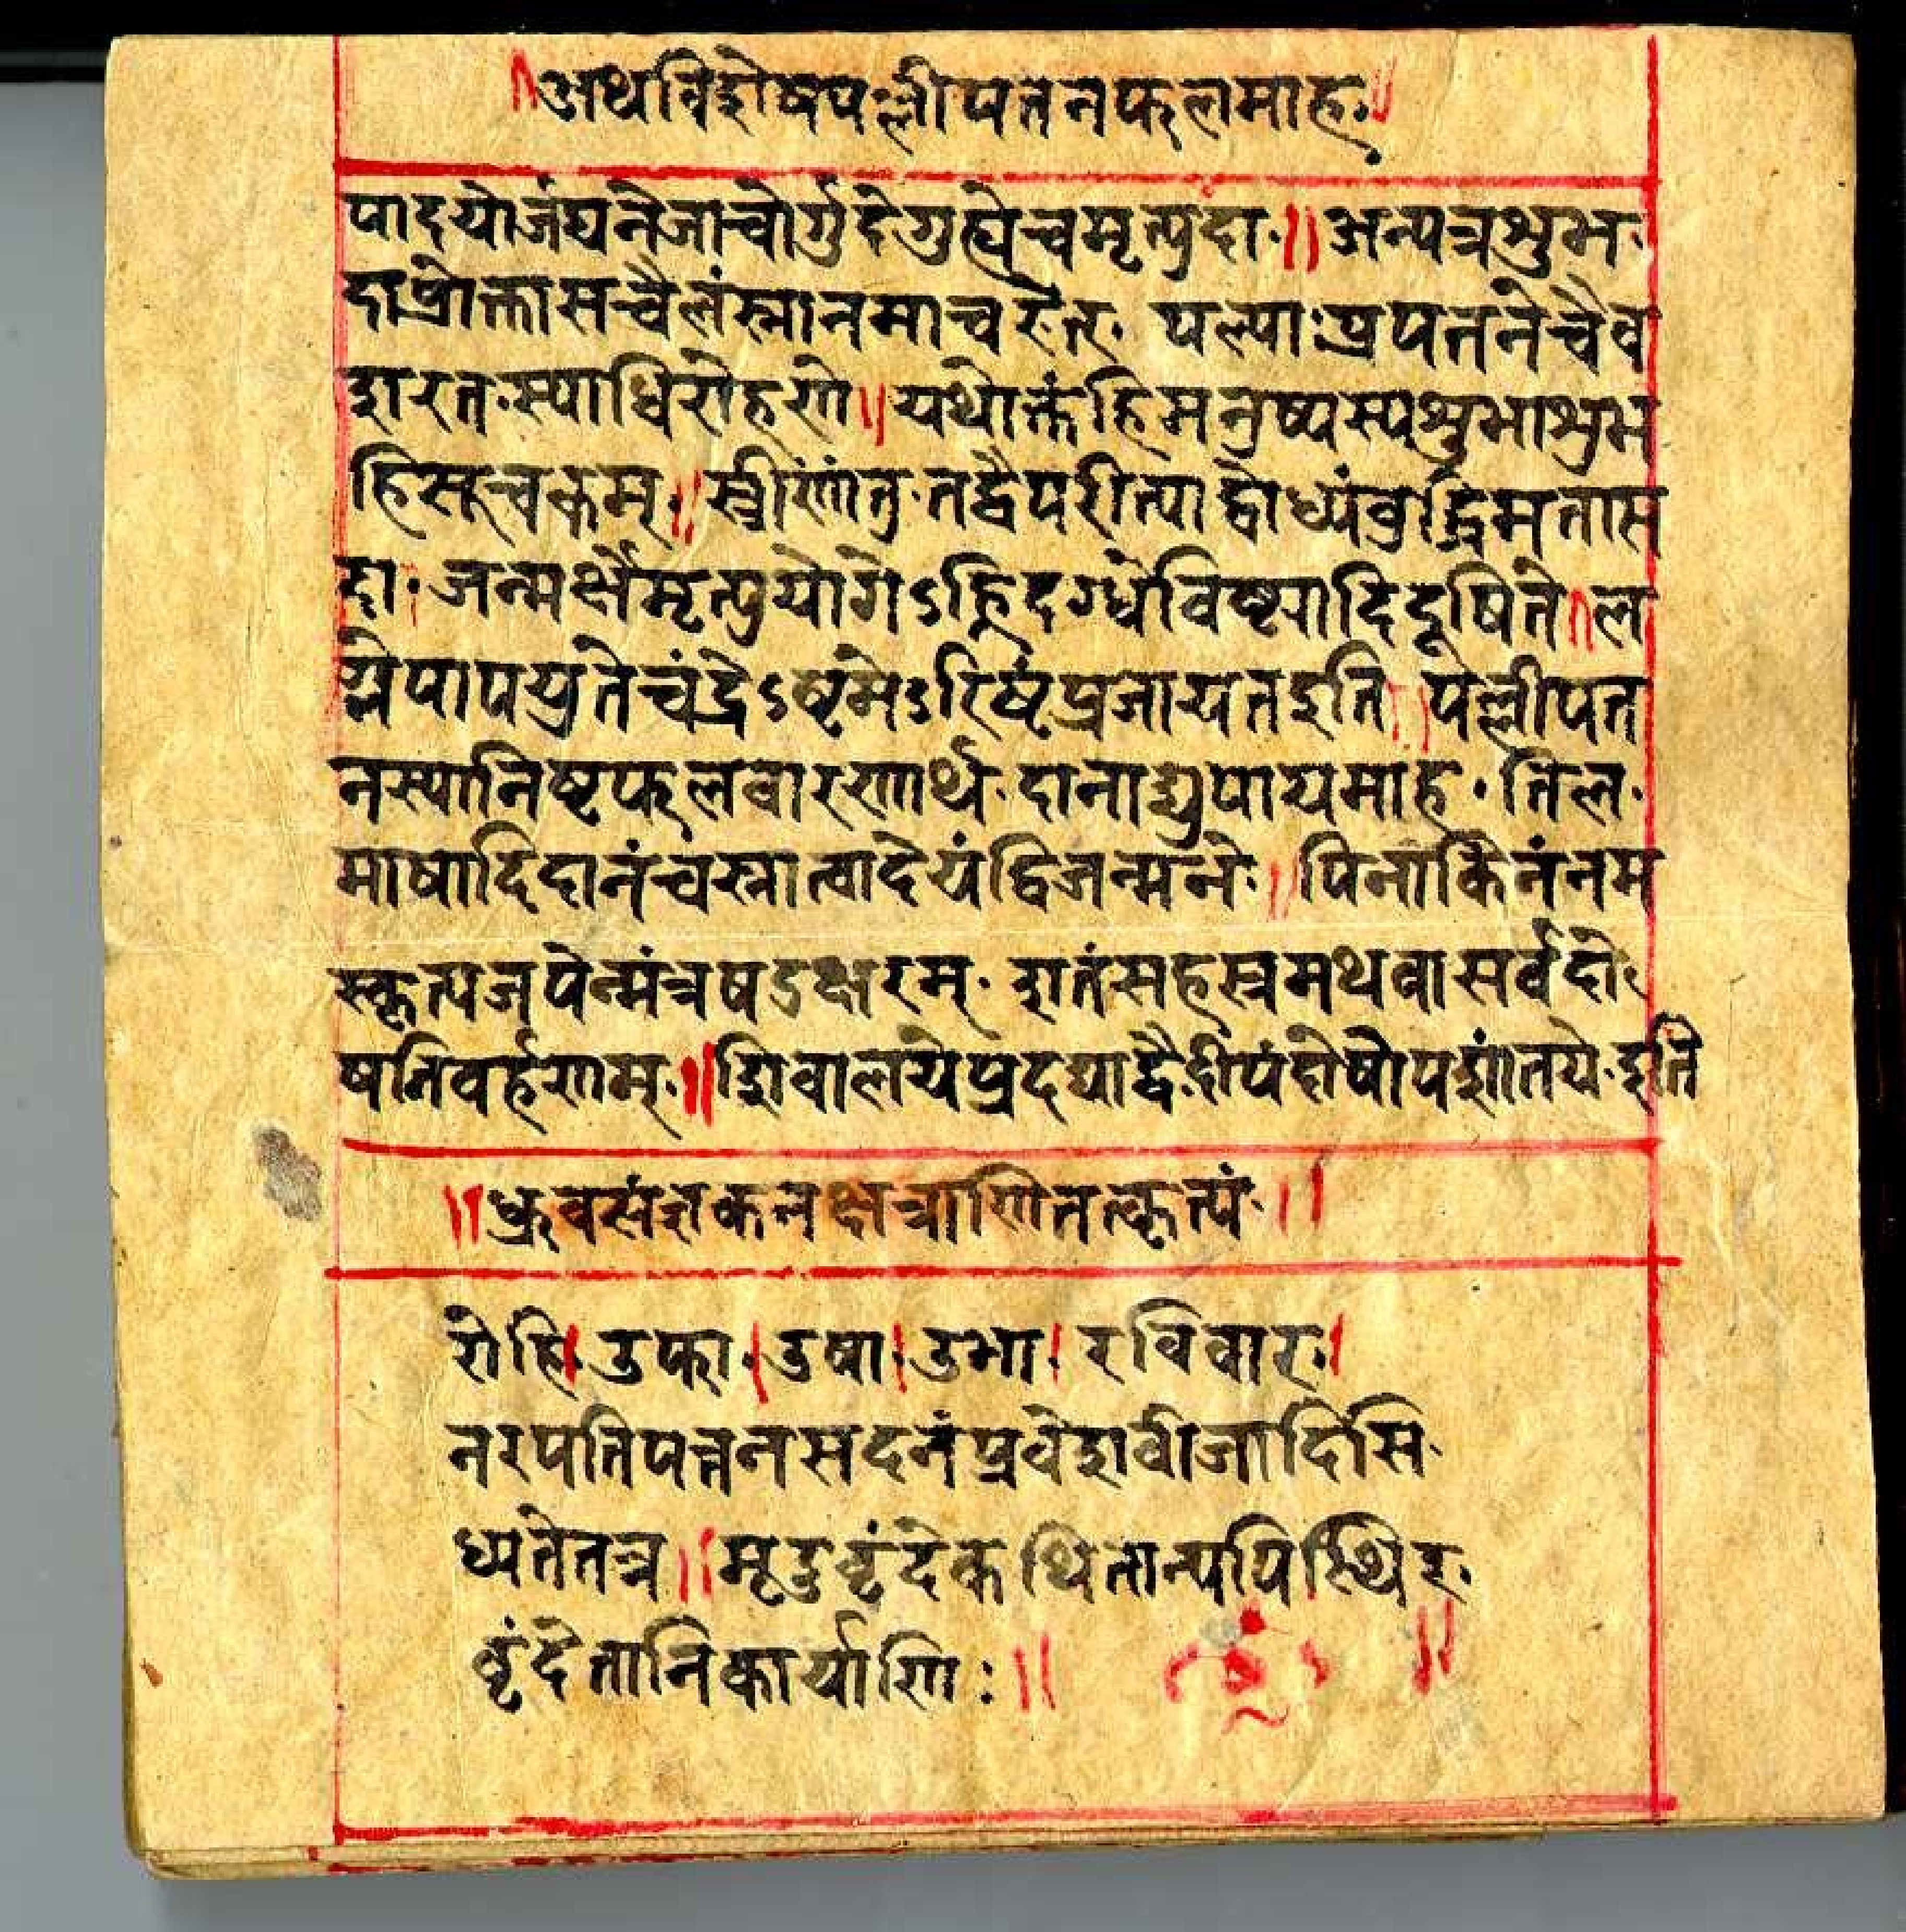 ॥अथविशेषपल्लीपतनफलमाह॥
पादयोर्जघनेजान्वोर्गुदेगुह्येचमृत्युदा॥अन्यत्रशुभ
दाप्रोक्तासचैलंस्नानमाचरेत् पल्याःप्रपतनेचैव
शरतस्याधिरोहणे॥यथोक्तंहिमनुष्यस्यशुभाशुभ
हिसूचकम्॥स्त्रीणांतुतद्वैपरीत्याद्बोध्यंबुद्धिमतास
दा जन्मर्क्षेमृत्युयोगेऽह्निदग्धेविष्ट्यादिदूषिते॥ल
ग्नेपापयुतेचंद्रेऽष्टमेऽरिष्टंप्रजायतइति॥पल्लीपत
नस्यानिष्टफलवारणार्थं दानाद्युपायमाह तिल
माषादिदानंचस्नात्वादेयंद्विजन्मने॥पिनाकिनंनम
स्कृत्यजपेन्मंत्रषडक्षरम् शतंसहस्त्रमथवासर्वदो
षनिवर्हणम्॥शिवालयेप्रदद्याद्वैदीपंदोषोपशांतये इति
॥ध्रुवसंज्ञकनक्षत्राणितत्कृत्यं॥
रोहि।उफा।उषा।उभा।रविवार।
नरपतिपत्तनसदनंप्रवेशवीजादिसि
ध्यतेतत्र॥मृदुवृंदेकथितान्यपिस्थिर
वृंदेतानिकार्याणि॥ ॥